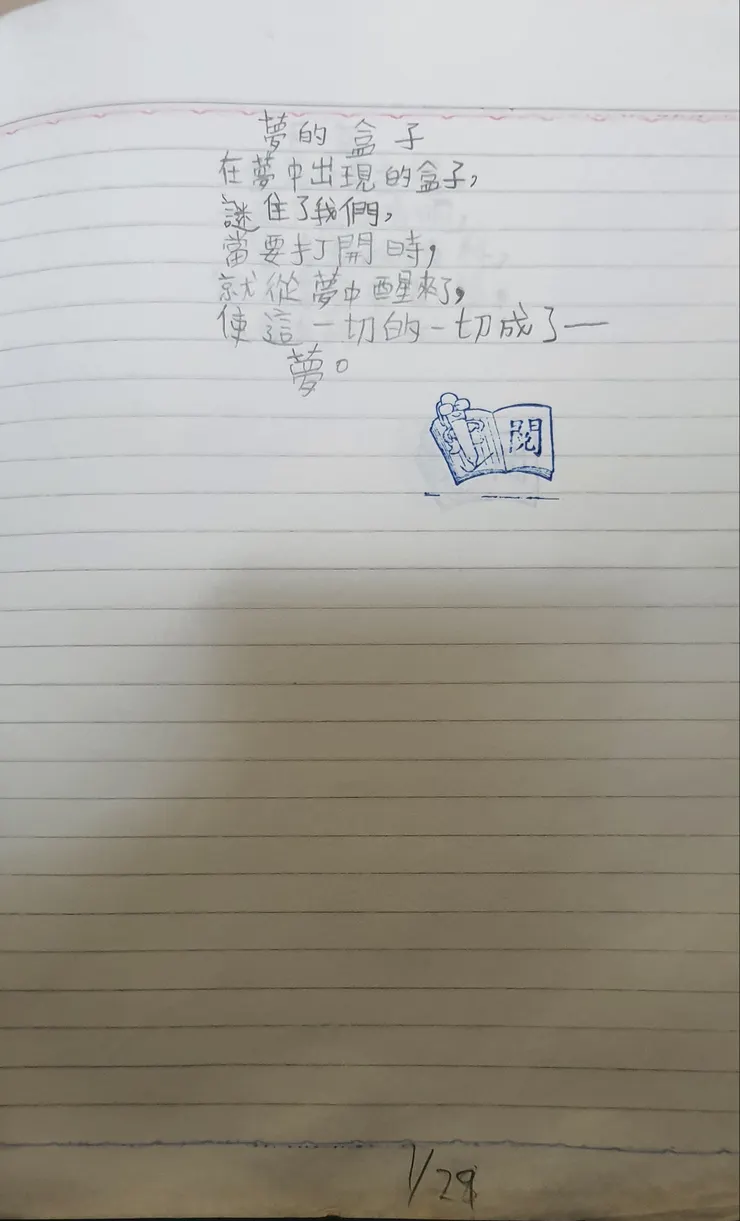 夢的盒子
在夢中出現的盒子，
謎住了我們，
當要打開時，
就從夢中醒來了，
使這一切的一切成了—
夢。
閱
1/29